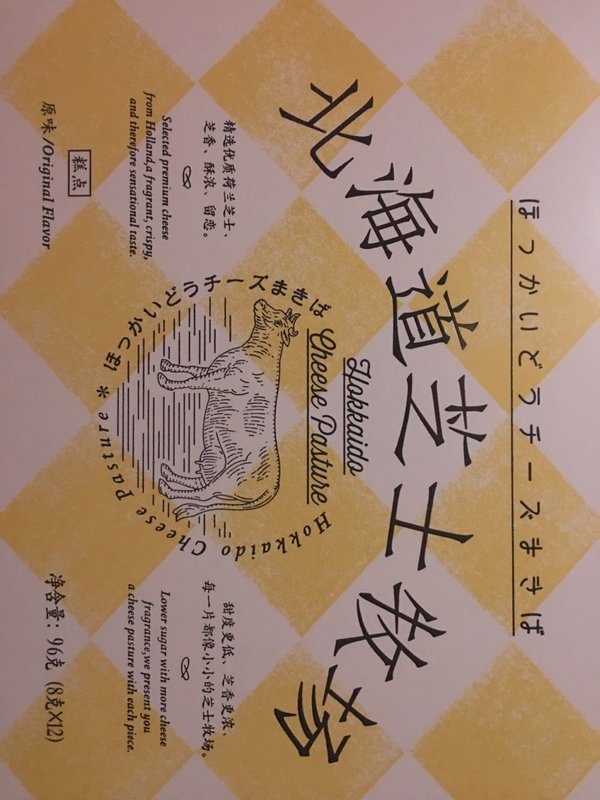 ほっかいどうチーズまきば
北海道芝士牧场
Hokkaido
Cheese Pasture
ほっかいどうチーズまきば
Hokkaido Cheese Pasture *
精选优质荷兰芝士、
芝香、酥浓、留恋。
Selected premium cheese
from Holland,a fragrant, crispy,
and therefore sensational taste.
糕点
原味/Original Flavor
甜度更低、芝香更浓、
每一片都像小小的芝士牧场。
Lower sugar with more cheese
fragrance,we present you
a cheese pasture with each piece.
净含量: 96克 (8克X12)